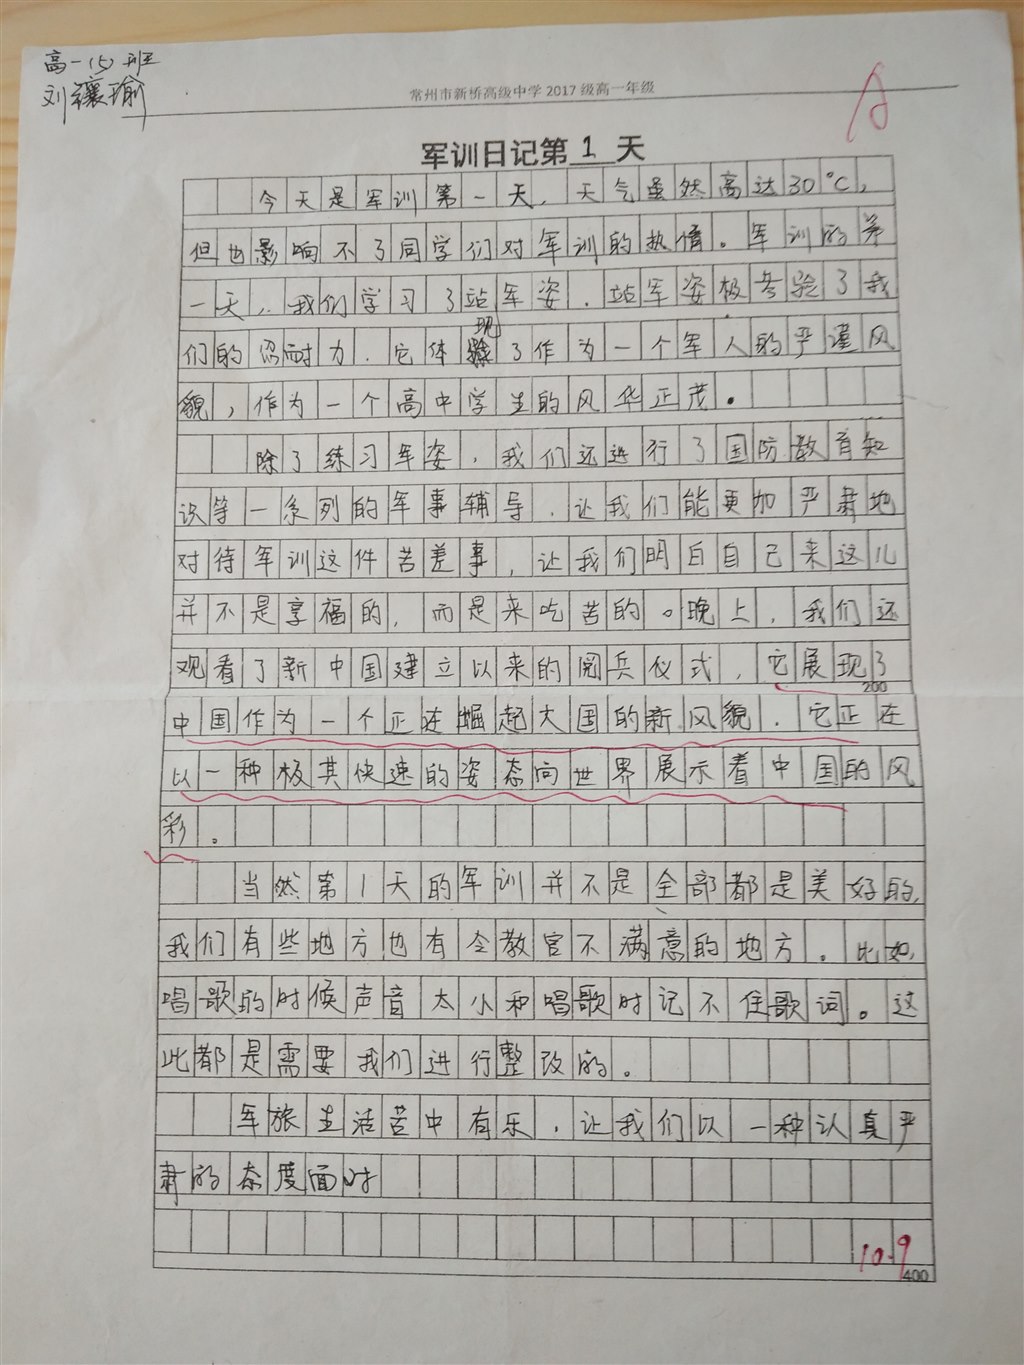 高一(5)班
刘镶瑜
常州市新桥高级中学 2017 级高一年级
A
军训日记第 1 天
今天是军训第一天,天气虽然高达30°C,
但也影响不了同学们对军训的热情。军训的第
一天,我们学习了站军姿,站军姿极考验了我
们的忍耐力,它体现了作为一个军人的严谨风
貌,作为一个高中学生的风华正茂。
除了练习军姿,我们还进行了国防教育知
识等一系列的军事辅导,让我们能更加严肃地
对待军训这件苦差事,让我们明白自己来这儿
并不是享福的,而是来吃苦的。晚上,我们还
观看了新中国建立以来的阅兵仪式,它展现了
200
中国作为一个正在崛起大国的新风貌,它正在
以一种极其快速的姿态向世界展示着中国的风
彩。
当然第1天的军训并不是全部都是美好的,
我们有些地方也有令教官不满意的地方。比如,
唱歌的时候声音太小和唱歌时记不住歌词。这
些都是需要我们进行整改的。
军旅生活苦中有乐,让我们以一种认真严
肃的态度面对
10.9
400